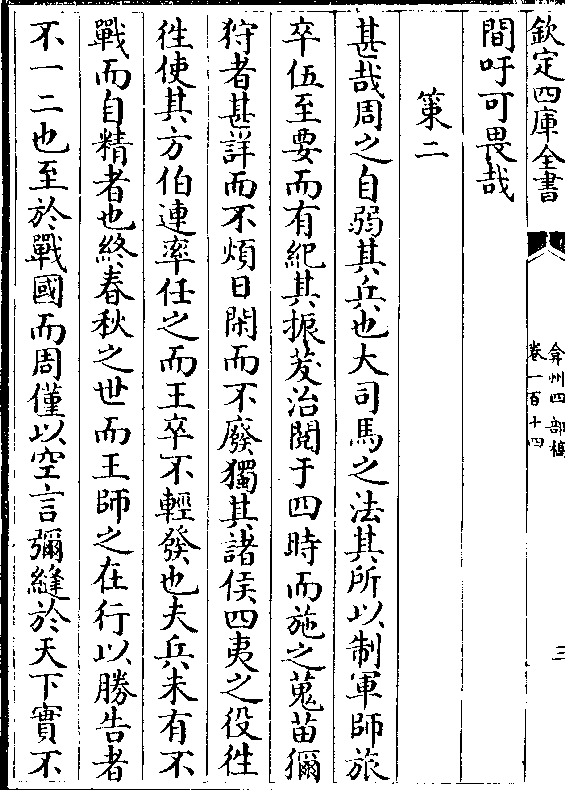 欽定四庫全書
弇州四部稿
卷一百十四
三
間吁可畏哉
策二
甚哉周之自弱其兵也大司馬之法其所以制軍師旅
卒伍至要而有紀其振茇治閱于四時而施之蒐苗獮
狩者甚詳而不煩日閑而不廢獨其諸侯四夷之役徃
徃使其方伯連率任之而王卒不輕發也夫兵未有不
戰而自精者也終春秋之世而王師之在行以勝告者
不一二也至於戰國而周僅以空言彌縫於天下實不